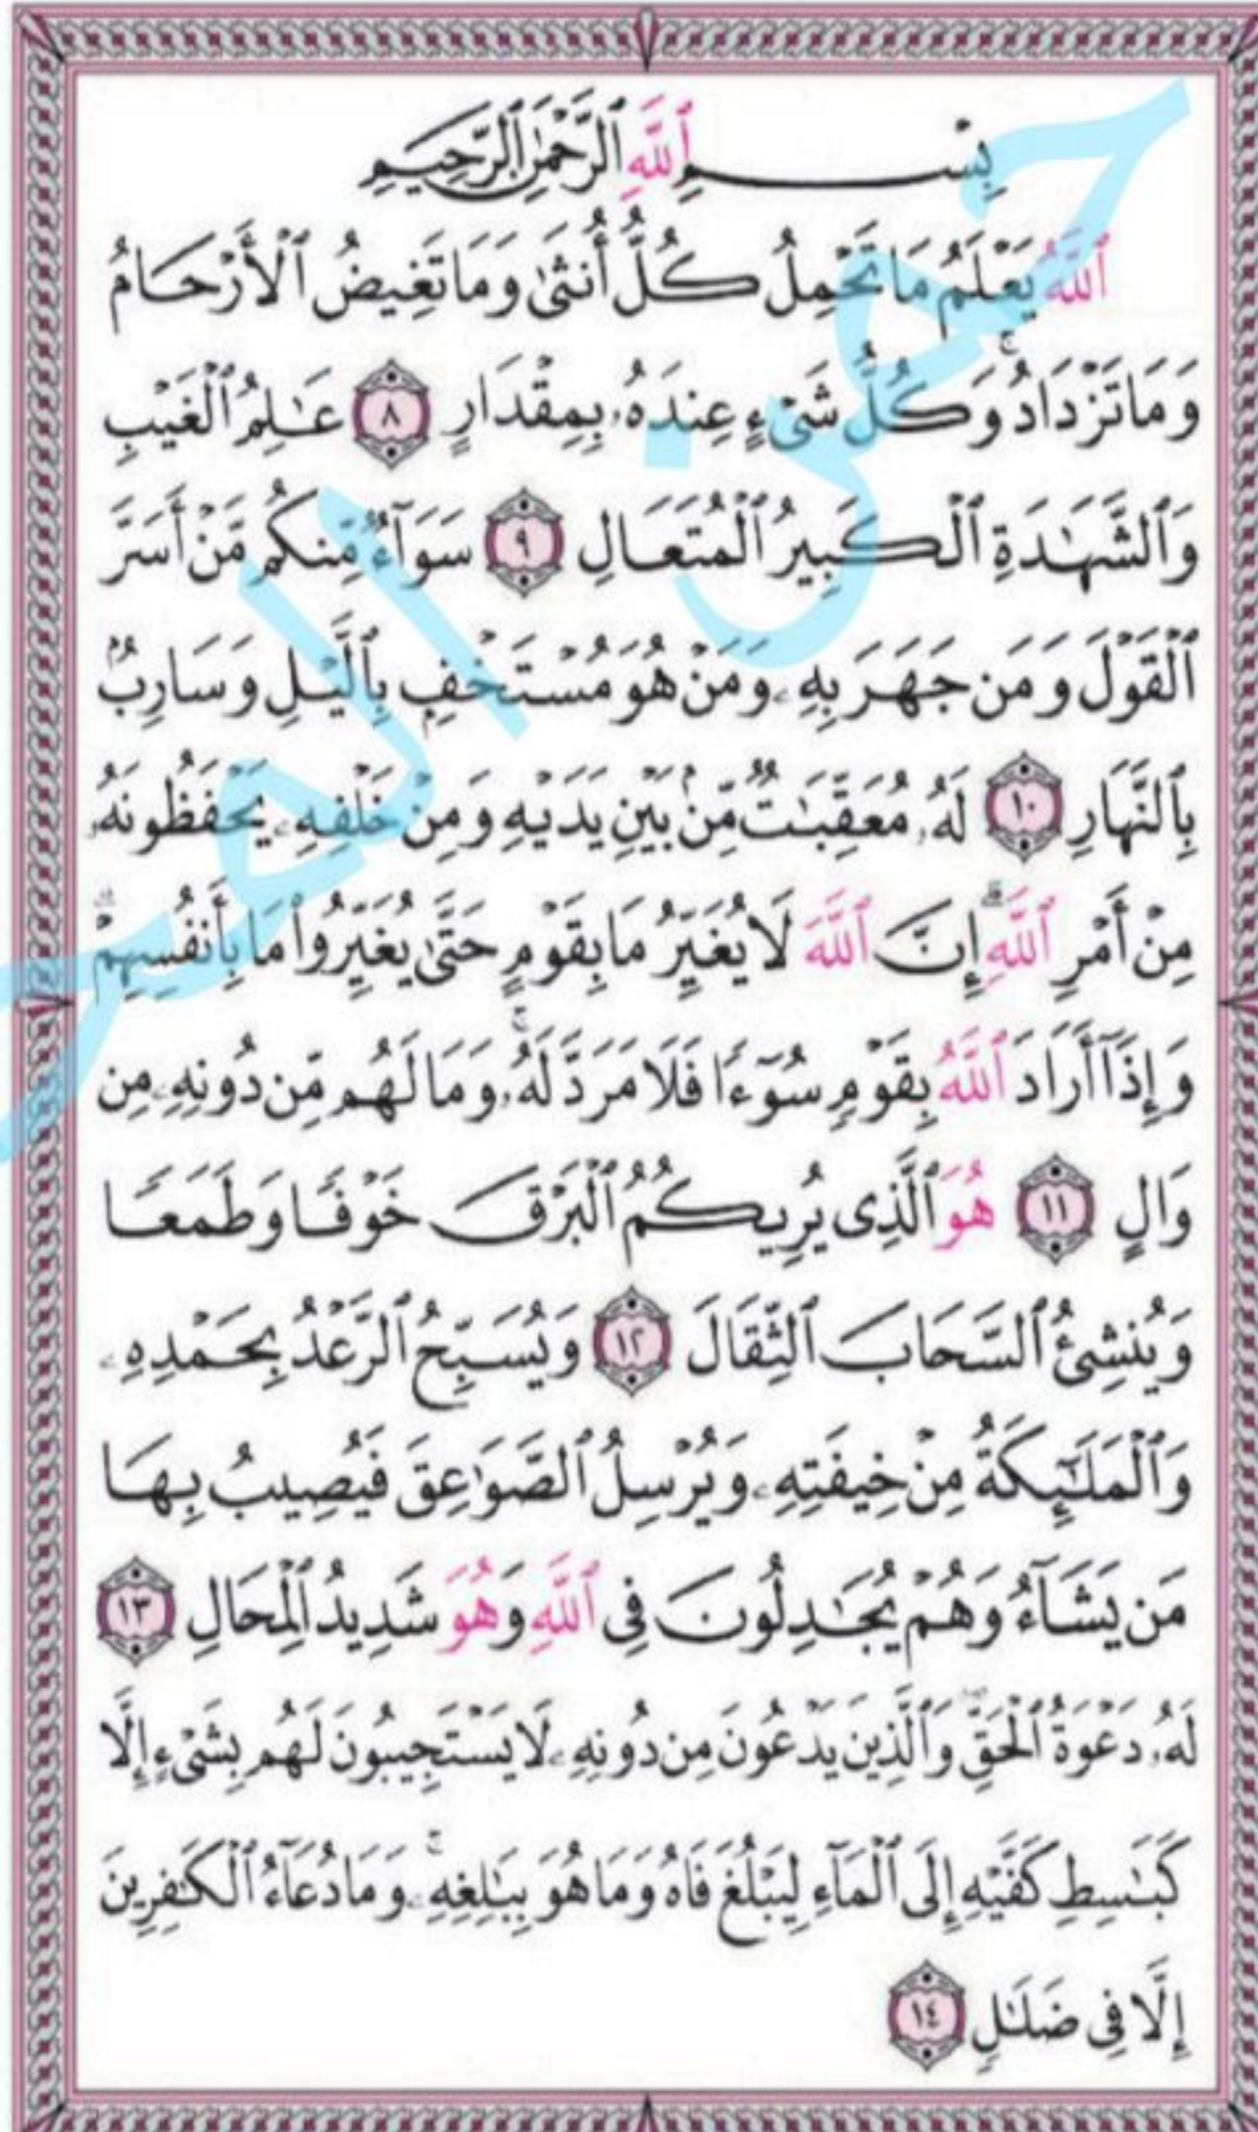 بِسْمِ ٱللَّهِ ٱلرَّحْمَٰنِ ٱلرَّحِيمِ
ٱللَّهُ يَعْلَمُ مَا تَحْمِلُ كُلُّ أُنثَىٰ وَمَا تَغِيضُ ٱلْأَرْحَامُ
وَمَا تَزْدَادُ ۖ وَكُلُّ شَىْءٍ عِندَهُۥ بِمِقْدَارٍ ٨ عَٰلِمُ ٱلْغَيْبِ
وَٱلشَّهَٰدَةِ ٱلْكَبِيرُ ٱلْمُتَعَالِ ٩ سَوَآءٌ مِّنكُم مَّنْ أَسَرَّ
ٱلْقَوْلَ وَمَن جَهَرَ بِهِۦ وَمَنْ هُوَ مُسْتَخْفٍۭ بِٱلَّيْلِ وَسَارِبٌۢ
بِٱلنَّهَارِ ١٠ لَهُۥ مُعَقِّبَٰتٌ مِّنۢ بَيْنِ يَدَيْهِ وَمِنْ خَلْفِهِۦ يَحْفَظُونَهُۥ
مِنْ أَمْرِ ٱللَّهِ ۗ إِنَّ ٱللَّهَ لَا يُغَيِّرُ مَا بِقَوْمٍ حَتَّىٰ يُغَيِّرُوا۟ مَا بِأَنفُسِهِمْ ۗ
وَإِذَآ أَرَادَ ٱللَّهُ بِقَوْمٍ سُوٓءًا فَلَا مَرَدَّ لَهُۥ ۚ وَمَا لَهُم مِّن دُونِهِۦ مِن
وَالٍ ١١ هُوَ ٱلَّذِى يُرِيكُمُ ٱلْبَرْقَ خَوْفًا وَطَمَعًا
وَيُنشِئُ ٱلسَّحَابَ ٱلثِّقَالَ ١٢ وَيُسَبِّحُ ٱلرَّعْدُ بِحَمْدِهِۦ
وَٱلْمَلَٰٓئِكَةُ مِنْ خِيفَتِهِۦ وَيُرْسِلُ ٱلصَّوَٰعِقَ فَيُصِيبُ بِهَا
مَن يَشَآءُ وَهُمْ يُجَٰدِلُونَ فِى ٱللَّهِ وَهُوَ شَدِيدُ ٱلْمِحَالِ ١٣
لَهُۥ دَعْوَةُ ٱلْحَقِّ ۖ وَٱلَّذِينَ يَدْعُونَ مِن دُونِهِۦ لَا يَسْتَجِيبُونَ لَهُم بِشَىْءٍ إِلَّا
كَبَٰسِطِ كَفَّيْهِ إِلَى ٱلْمَآءِ لِيَبْلُغَ فَاهُ وَمَا هُوَ بِبَٰلِغِهِۦ ۚ وَمَا دُعَآءُ ٱلْكَٰفِرِينَ
إِلَّا فِى ضَلَٰلٍ ١٤